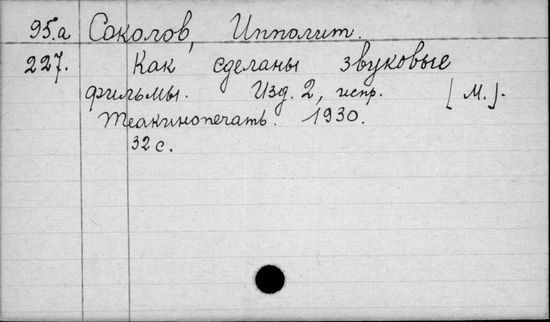 95.а Соколов, Ипполит.
227. Как сделаны звуковые
фильмы. Изд. 2, испр. [М.].
Теакинопечать. 1930.
32 с.